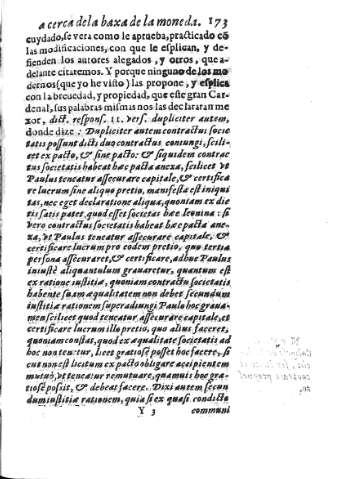 a cerca de la baxa de la moneda. 173
cuydado, se vera como le aprueba, practicado cõ
las modificaciones, con que le esplican, y de-
fienden los autores alegados, y otros, que a-
delante citaremos. Y porque ninguno de los mo
dernos (que yo he visto) las propone, y esplica
con la breuedad, y propiedad, que este gran Car-
denal, sus palabras mismas nos las declararan me
xor, dict. respons. 11. vers. dupliciter autem,
donde dize: Dupliciter autem contractus socie
tatis possunt dicti duo contractus coniungi, scili-
cet ex pacto, & sine pacto: & siquidem contrac
tus societatis habeat hæc pacta anexa, scilicet vt
Paulus teneatur assecurare capitale, & certifica
re lucrum sine aliquo pretio, manifesta est iniqui
tas, nec eget declaratione aliqua, quoniam ex die
tis satis patet, quod esset societas hæc leonina: si
vero contractus societatis habeat hæc pacta ane-
xa, vt Paulus teneatur assecurare capitale, &
certificare lucrum pro eodem pretio, quo tertia
persona assecuraret, & certificare, adhuc Paulus
iniustè aliquantulum grauaretur, quantum est
ex ratione iustitiæ, quoniam contractu societatis
habente suam æqualitatem non debet secundum
iustitiæ rationem superadiungi Paulo hoc graua-
men scilicet quod teneatur assecurare capitale, et
certificare lucrum illo pretio, quo alius faceret,
quoniam constat, quod ex æqualitate societatis ad
hoc non tenetur, licet gratiosè posset hoc facere, si
cut non est licitum ex pacto obligare accipientem
mutuò, vt teneatur remutuare, quamuis hoc gra-
tiosè possit, & debeat facere. Dixi autem secun
dum iustitiæ rationem, quia si ex quasi condicto
Y 3 communi